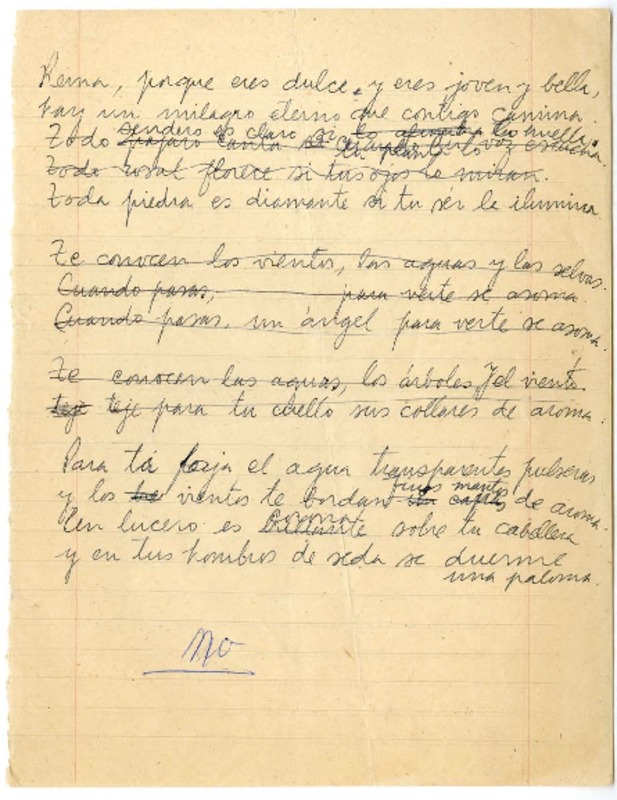 Reina, porque eres dulce, y eres joven y bella,
hay un milagro eterno que contigo camina.
sendero es claro si tu huella.
Todo pájaro canta si tu voz escucha.
tu planta lo
Todo rosal florece si tus ojos lo miran.
Toda piedra es diamante si tu sér la ilumina
Te conocen los vientos, las aguas y las selvas.
Cuando pasas, para verte se asoma.
Cuando pasas, un ángel para verte se asoma.
Te conocen las aguas, los árboles, y el viento
teje teje para tu cuello sus collares de aroma.
Para tí forja el agua transparentes pulseras
finos mantos
y los vientos te bordan capas de aroma.
corona
Un lucero es brillante sobre tu cabellera
y en tus hombros de seda se duerme
una paloma.
No